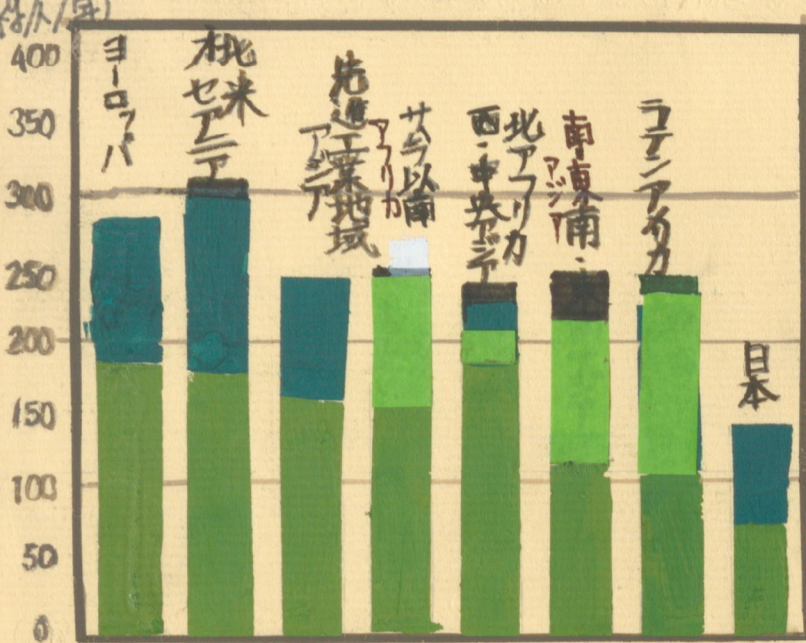 (kg/人/年)
400
350
300
250
200
150
100
50
0
ヨーロッパ
北米
オセアニア
先進工業地域
アジア
サハラ以南
アフリカ
北アフリカ
西・中央アジア
南・東南・東
アジア
ラテンアメリカ
日本